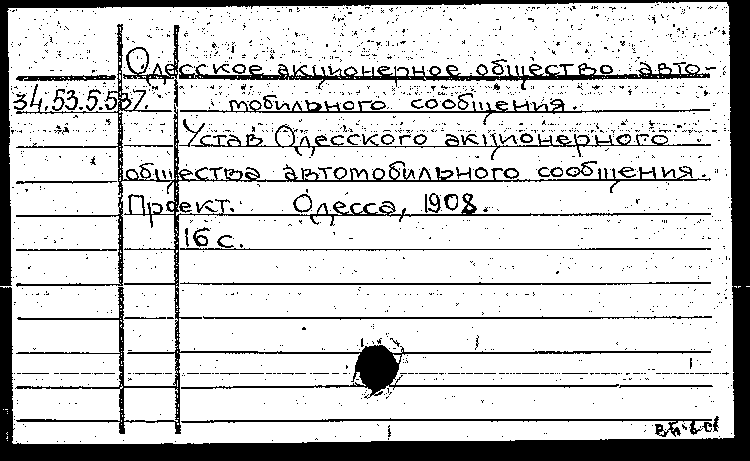 Одесское акционерное общество авто-
34.53.5.537. мобильного сообщения.
Устав Одесского акционерного
общества автомобильного сообщения.
Проект. Одесса, 1908.
16 с.